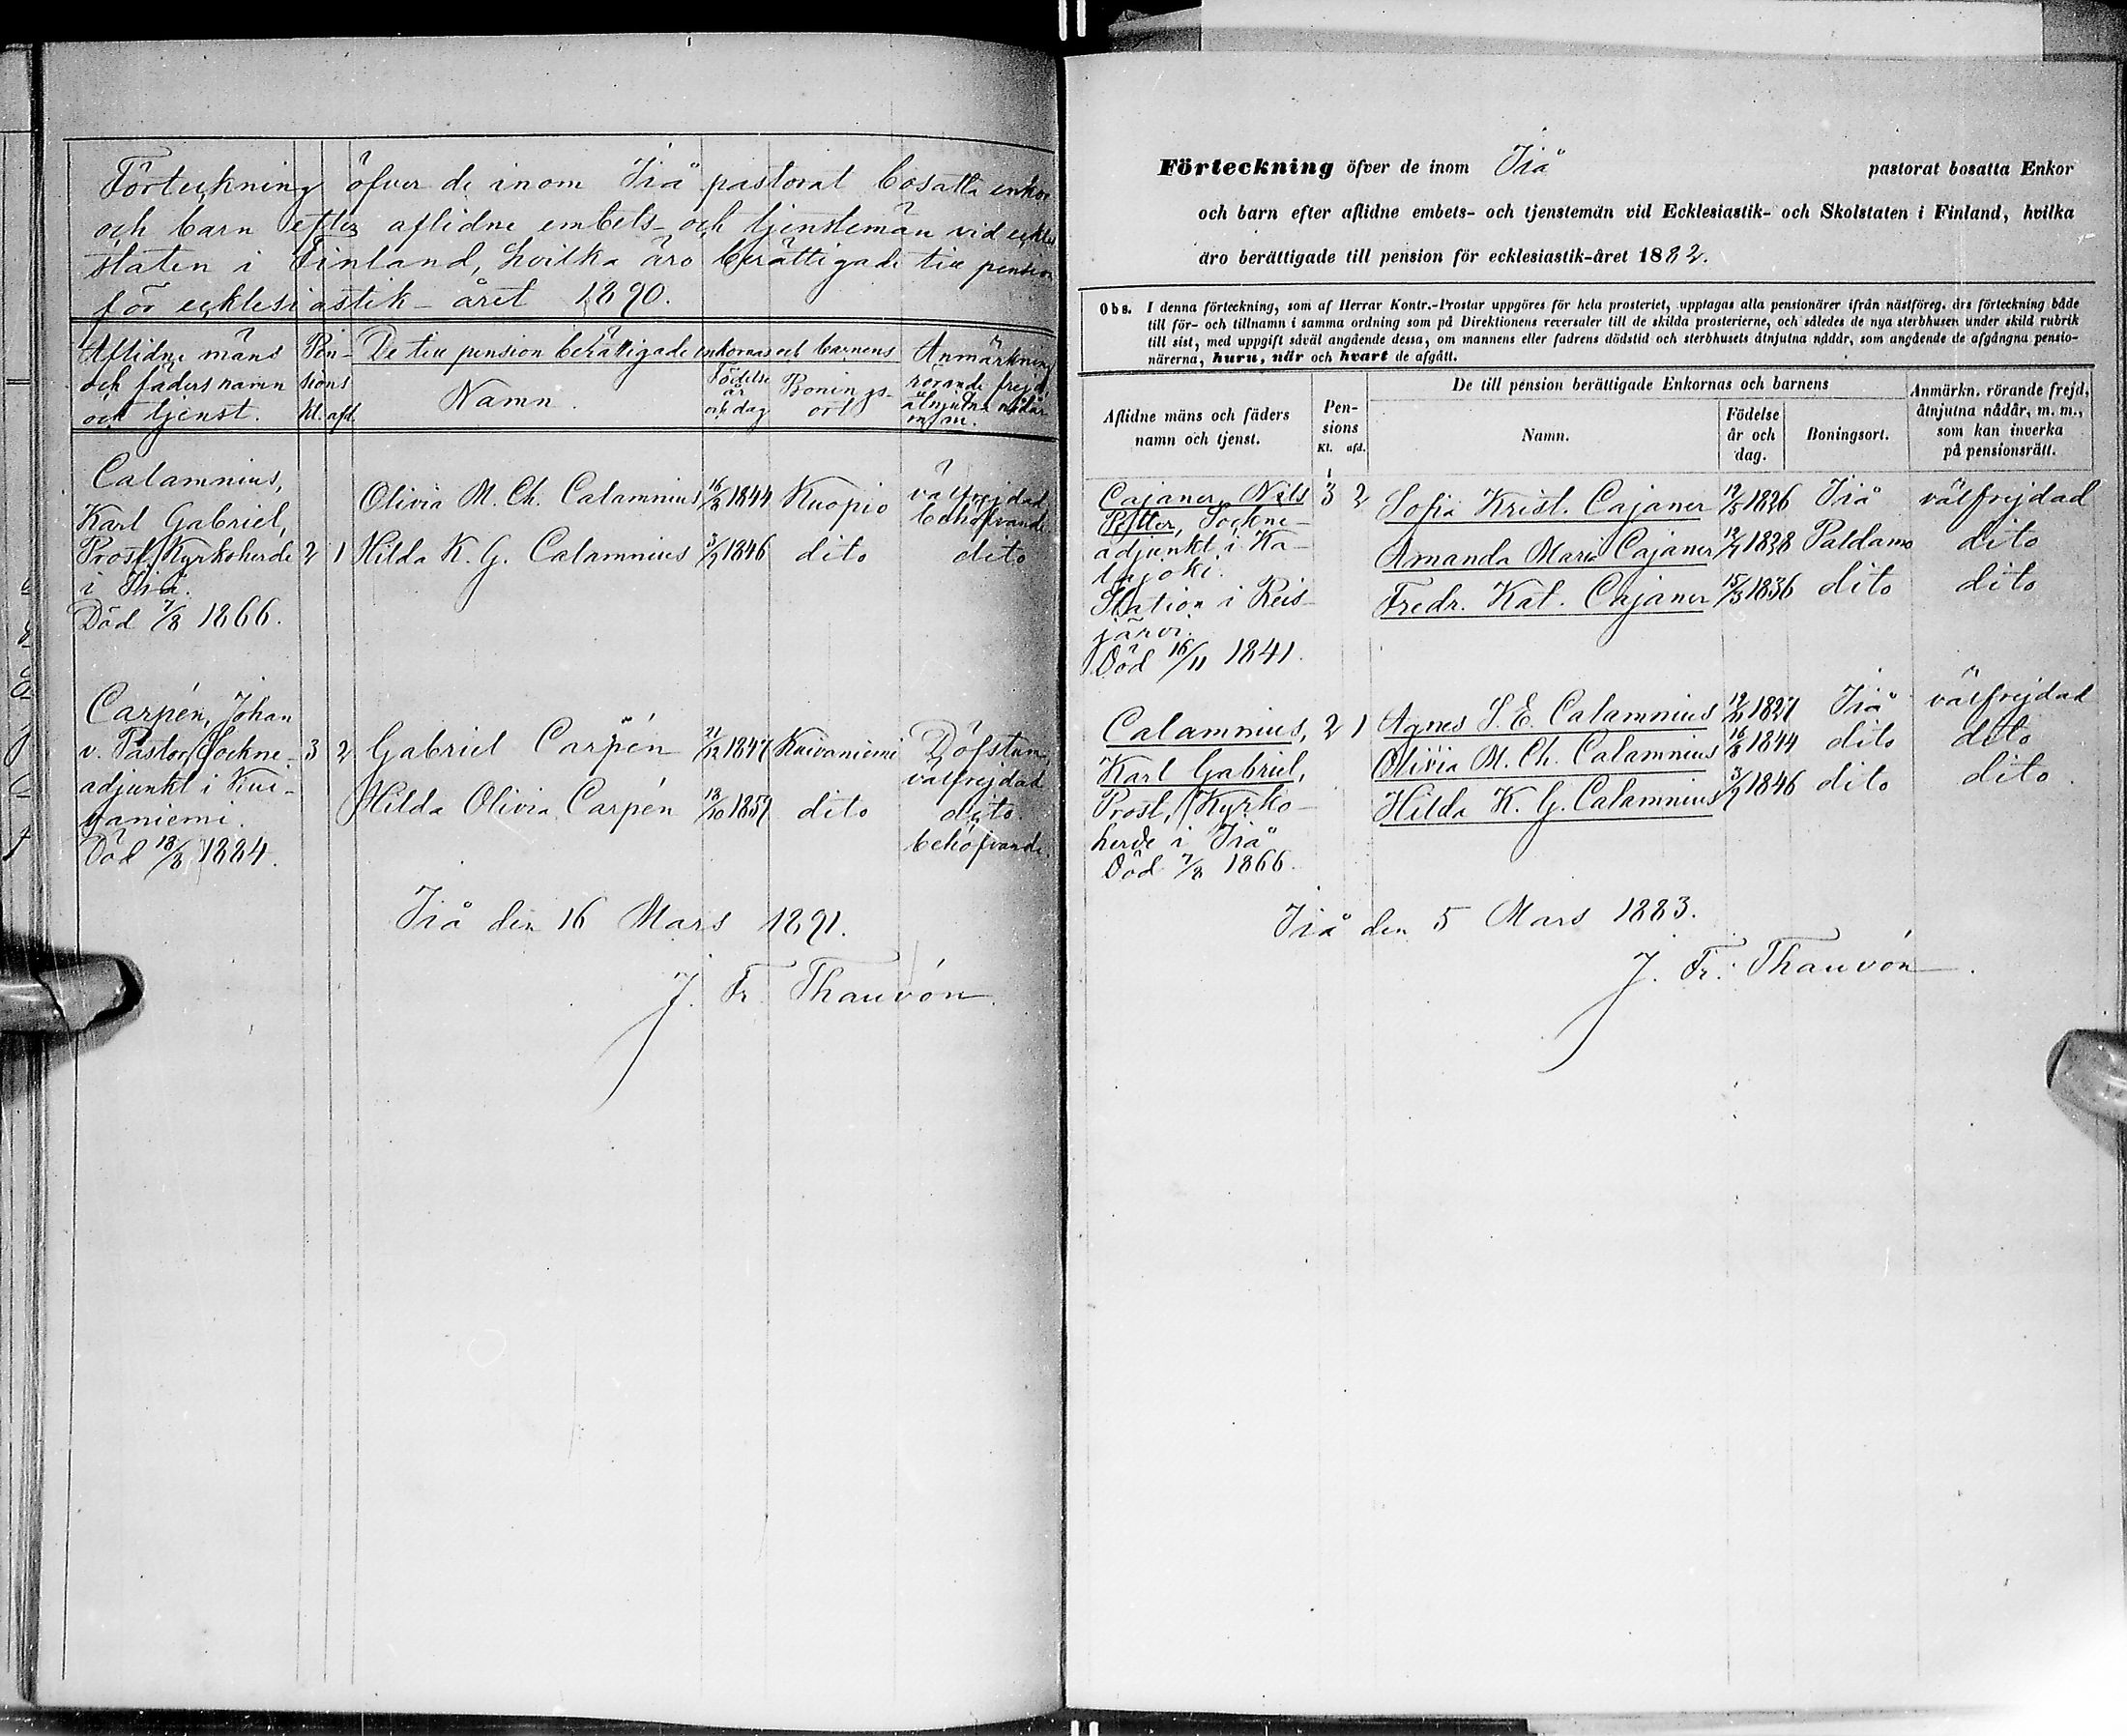 Förteckning öfver de inom Iiå pastorat bosatta enkor
och barn efter aflidne embets- och tjenstemän vid eckles
staten i Finland, hvilka äro berättigade till pension
för ecklesiastik-året 1890.
Aflidne mäns och fäders namn och tjenst.
Pensions kl. afd.
De till pension berättigade enkornas och barnens
Namn.
Födelse år och dag
Boningsort
Anmärkning rörande frejd, åtnjutna nådår m.m.
Calamnius,
Karl Gabriel,
Prost, Kyrkoherde 2 1
i Iiå.
Död 7/8 1866.
Olivia M. Ch. Calamnius 16/8 1844 Kuopio välfrejdad behöfvande
Hilda K. G. Calamnius 3/7 1846 dito dito
Carpén, Johan
v. Pastor, Sockne- 3 2
adjunkt i Kui-
vaniemi.
Död 18/8 1884.
Gabriel Carpén 21/12 1847 Kuivaniemi Döfstum välfrejdad
Hilda Olivia Carpén 18/10 1857 dito dito behöfvande.
Iiå den 16 Mars 1891.
J. Fr. Thauvón.
Förteckning öfver de inom Iiå pastorat bosatta Enkor
och barn efter aflidne embets- och tjenstemän vid Ecklesiastik- och Skolstaten i Finland, hvilka
äro berättigade till pension för ecklesiastik-året 1882.
Obs. I denna förteckning, som af Herrar Kontr.-Prostar uppgöres för hela prosteriet, upptagas alla pensionärer ifrån nästföreg. års förteckning både
till för- och tillnamn i samma ordning som på Direktionens reversaler till de skilda prosterierne, och således de nya sterbhusen under skild rubrik
till sist, med uppgift såväl angående dessa, om mannens eller fadrens dödstid och sterbhusets åtnjutna nådår, som angående de afgångna pensio-
närerna, huru, när och hvart de afgått.
Aflidne mäns och fäders
namn och tjenst.
Pen-
sions
Kl. afd.
De till pension berättigade Enkornas och barnens
Namn.
Födelse
år och
dag.
Boningsort.
Anmärkn. rörande frejd,
åtnjutna nådår, m. m.,
som kan inverka
på pensionsrätt.
Cajaner, Nils 3 2
Petter, Sockne-
adjunkt i Ka-
lajoki.
Station i Reis-
järvi.
Död 16/11 1841.
Sofia Krist. Cajaner 12/5 1826 Iiå välfrejdad
Amanda Maria Cajaner 12/7 1828 Paldamo dito
Fredr. Kat. Cajaner 15/3 1836 dito dito
Calamnius, 2 1
Karl Gabriel,
Prost, Kyrko-
herde i Iiå
Död 7/8 1866.
Agnes S. E. Calamnius 1827 Iiå välfrejdad
Olivia M. Ch. Calamnius 16/8 1844 dito dito
Hilda K. G. Calamnius 3/7 1846 dito dito.
Iiå den 5 Mars 1883.
J. Fr. Thauvón.